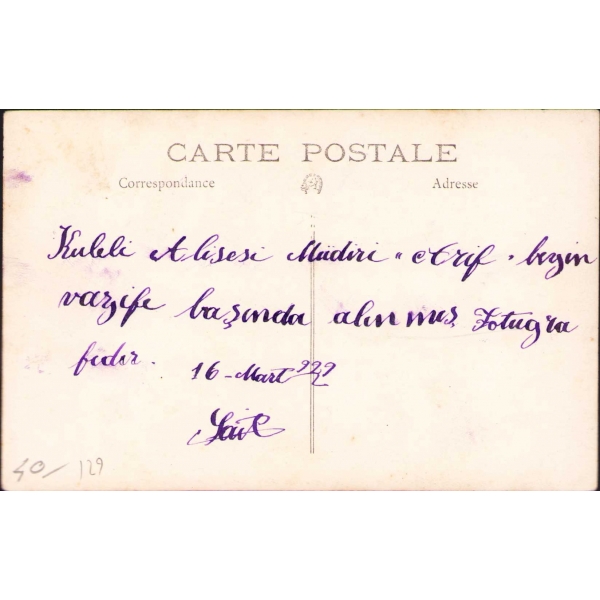 CARTE POSTALE
Correspondance Adresse
Kuleli A lisesi Müdiri "Arif" beyin
vazife başında alınmış Fotugra
fıdır.
16-Mart 929
Sait
40/ 129